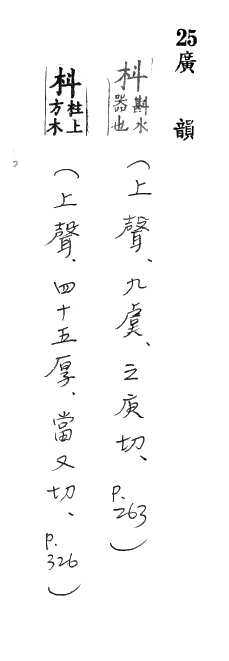 25 廣韻
枓 斟水器也 （上聲、九虞、之庾切、p.263）
枓 柱上方木 （上聲、四十五厚、當又切、p.326）